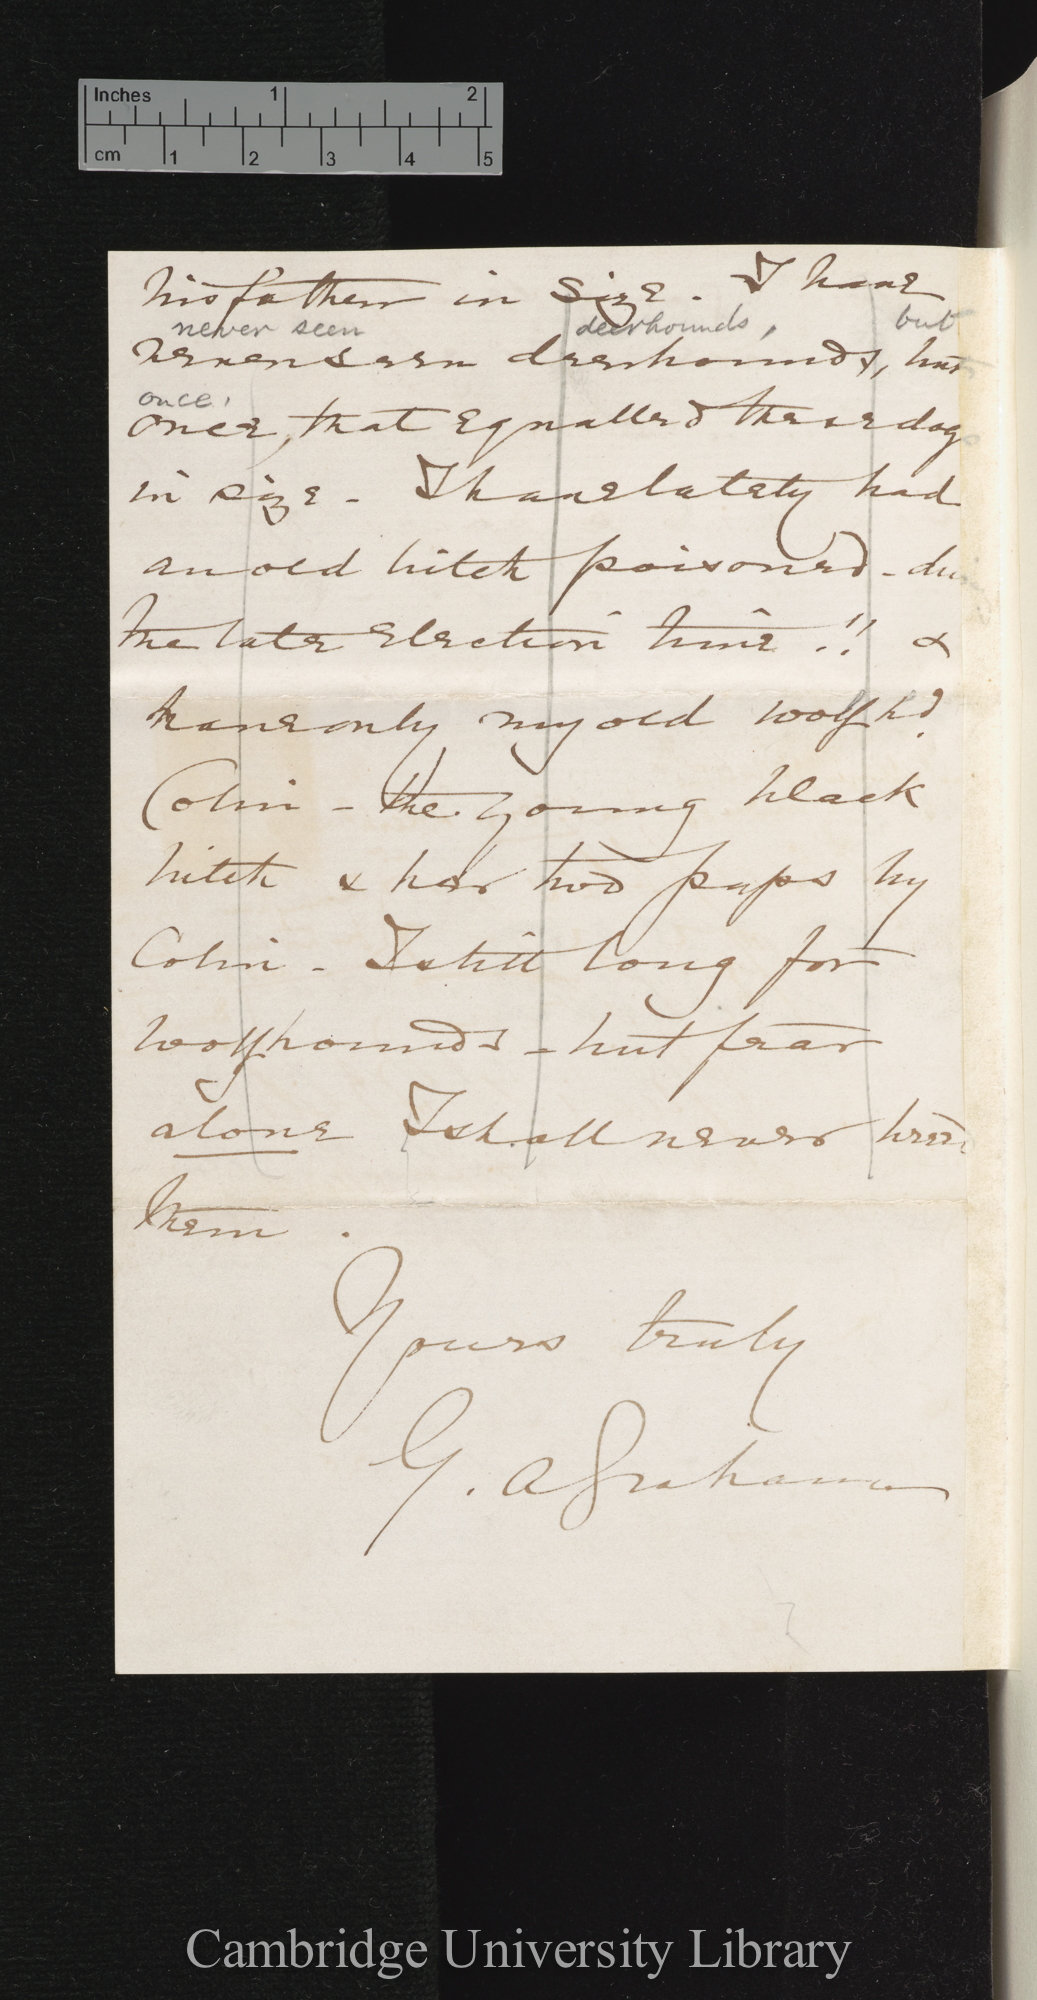 Inches 1 2
cm 1 2 3 4 5
his father in size. I have
never seen deerhounds, but
never seen deerhounds, but
once,
once, that equalled these dogs
in size - I have lately had
an old bitch poisoned - du
the late election time!! &
have only my old wolf hd.
Colin - the young black
bitch & her two pups by
Colin - I still long for
wolfhounds - but fear
alone I shall never breed
them.
Yours truly
G. A Graham
Cambridge University Library